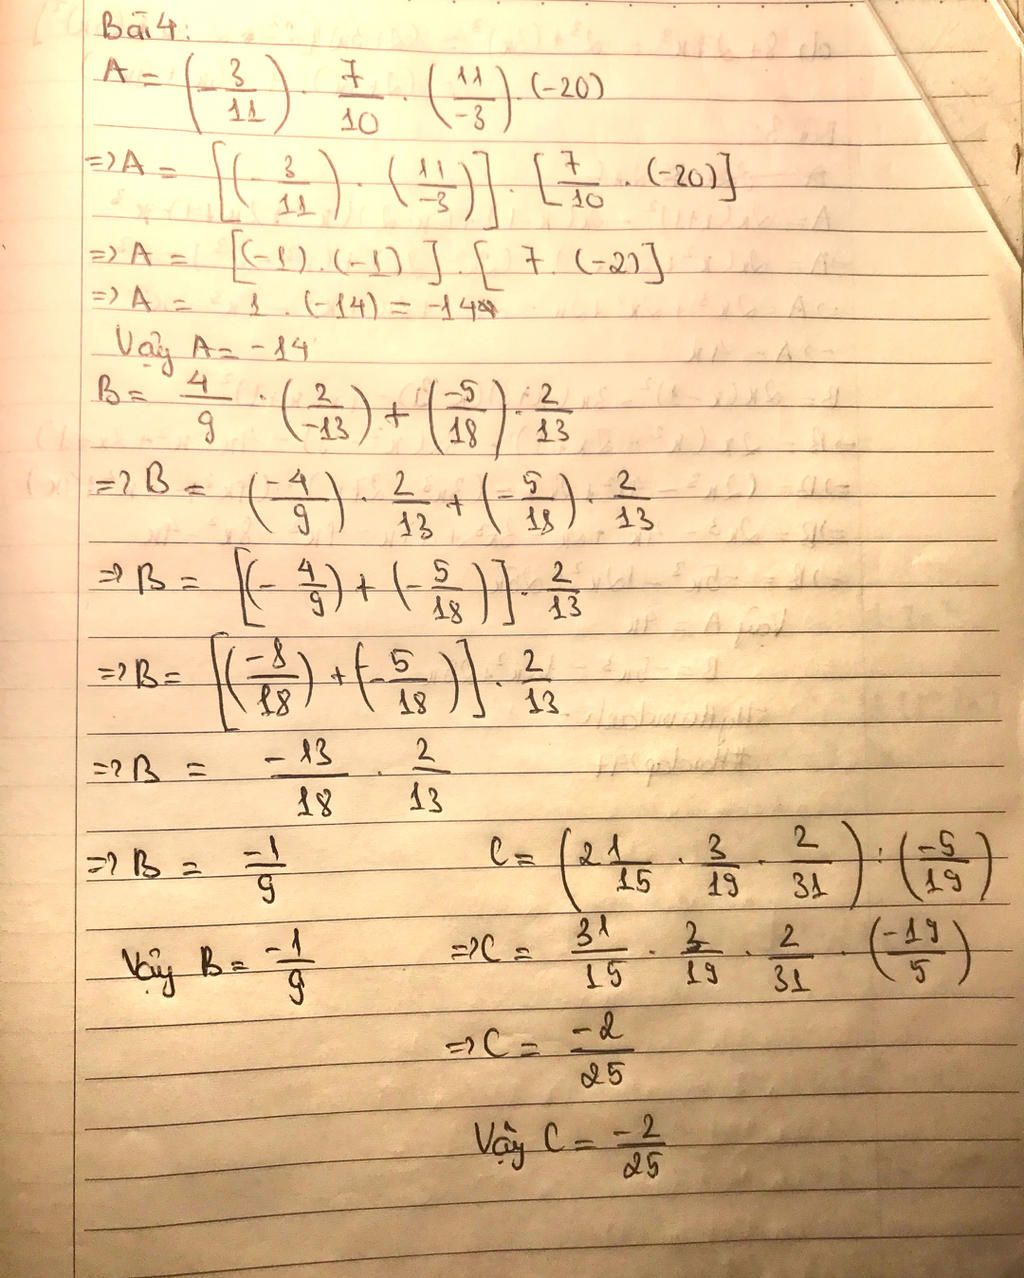 Bài 4:
A = (-3/11) . 7/10 . (11/-3) . (-20)
=> A = [(-3/11) . (11/-3)] . [7/10 . (-20)]
=> A = [(-1) . (-1)] . [7 . (-2)]
=> A = 1 . (-14) = -14
Vậy A = -14
B = 4/9 . (2/-13) + (-5/18) . 2/13
=> B = (-4/9) . 2/13 + (-5/18) . 2/13
=> B = [(-4/9) + (-5/18)] . 2/13
=> B = [(-8/18) + (-5/18)] . 2/13
=> B = -13/18 . 2/13
=> B = -1/9
Vậy B = -1/9
C = (2 1/15 . 3/19 . 2/31) : (-5/19)
=> C = 31/15 . 3/19 . 2/31 . (-19/5)
=> C = -2/25
Vậy C = -2/25